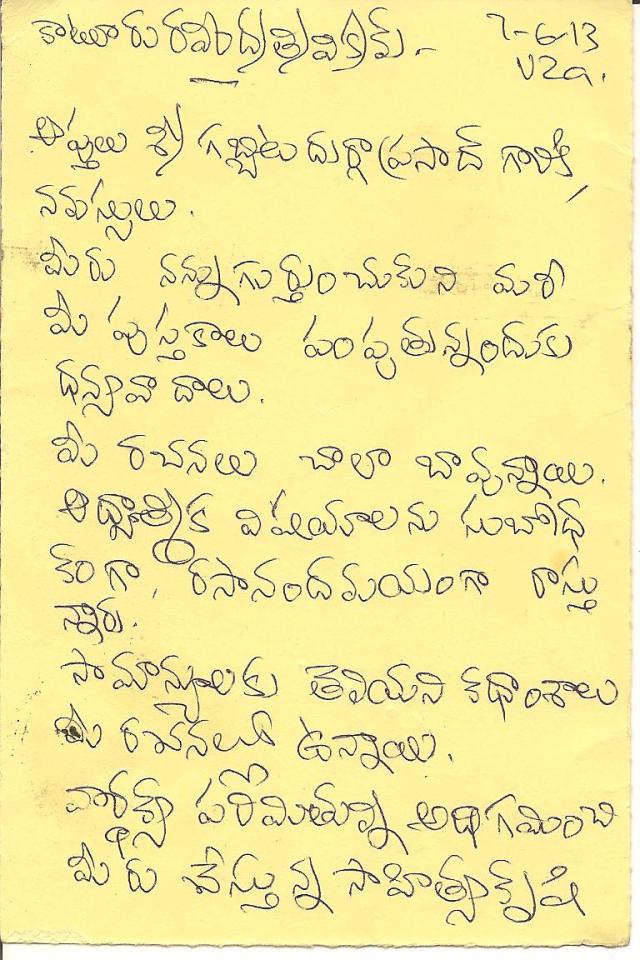 కాటూరు రవీంద్ర త్రివిక్రమ్ - 7-6-13
VZa.
ఆప్తులు శ్రీ గబ్బిట దుర్గాప్రసాద్ గారికి,
నమస్సులు.
మీరు నన్ను గుర్తుంచుకుని మరీ
మీ పుస్తకాలు పంపుతున్నందుకు
ధన్యవాదాలు.
మీ రచనలు చాలా బావున్నాయి.
ఆధ్యాత్మిక విషయాలను సుబోధ
కంగా, రసానందమయంగా రాస్తు
న్నారు.
సామాన్యులకు తెలియని కథాంశాలు
మీ రచనలలో ఉన్నాయి.
వార్ధక్య పరిమితుల్ని అధిగమించి
మీరు చేస్తున్న సాహిత్యకృషి